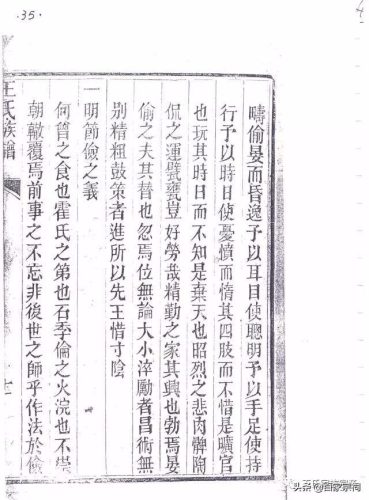 ·35·
疇偷晏而昏逸予以耳目使聰明予以手足使持
行予以時日使憂憤而惰其四肢而不惜是曠官
也玩其時日而不知是棄天也昭烈之悲肉髀陶
侃之運甓甕豈好勞哉精勤之家其興也勃焉晏
偷之夫其替也忽焉位無論大小淬勵者昌術無
別精粗鼓策者進所以先王惜寸陰
一明節儉之義
何曾之食也霍氏之第也石季倫之火浣也不崇
朝轍覆焉前事之不忘非後世之師乎作法於儉
王氏族譜